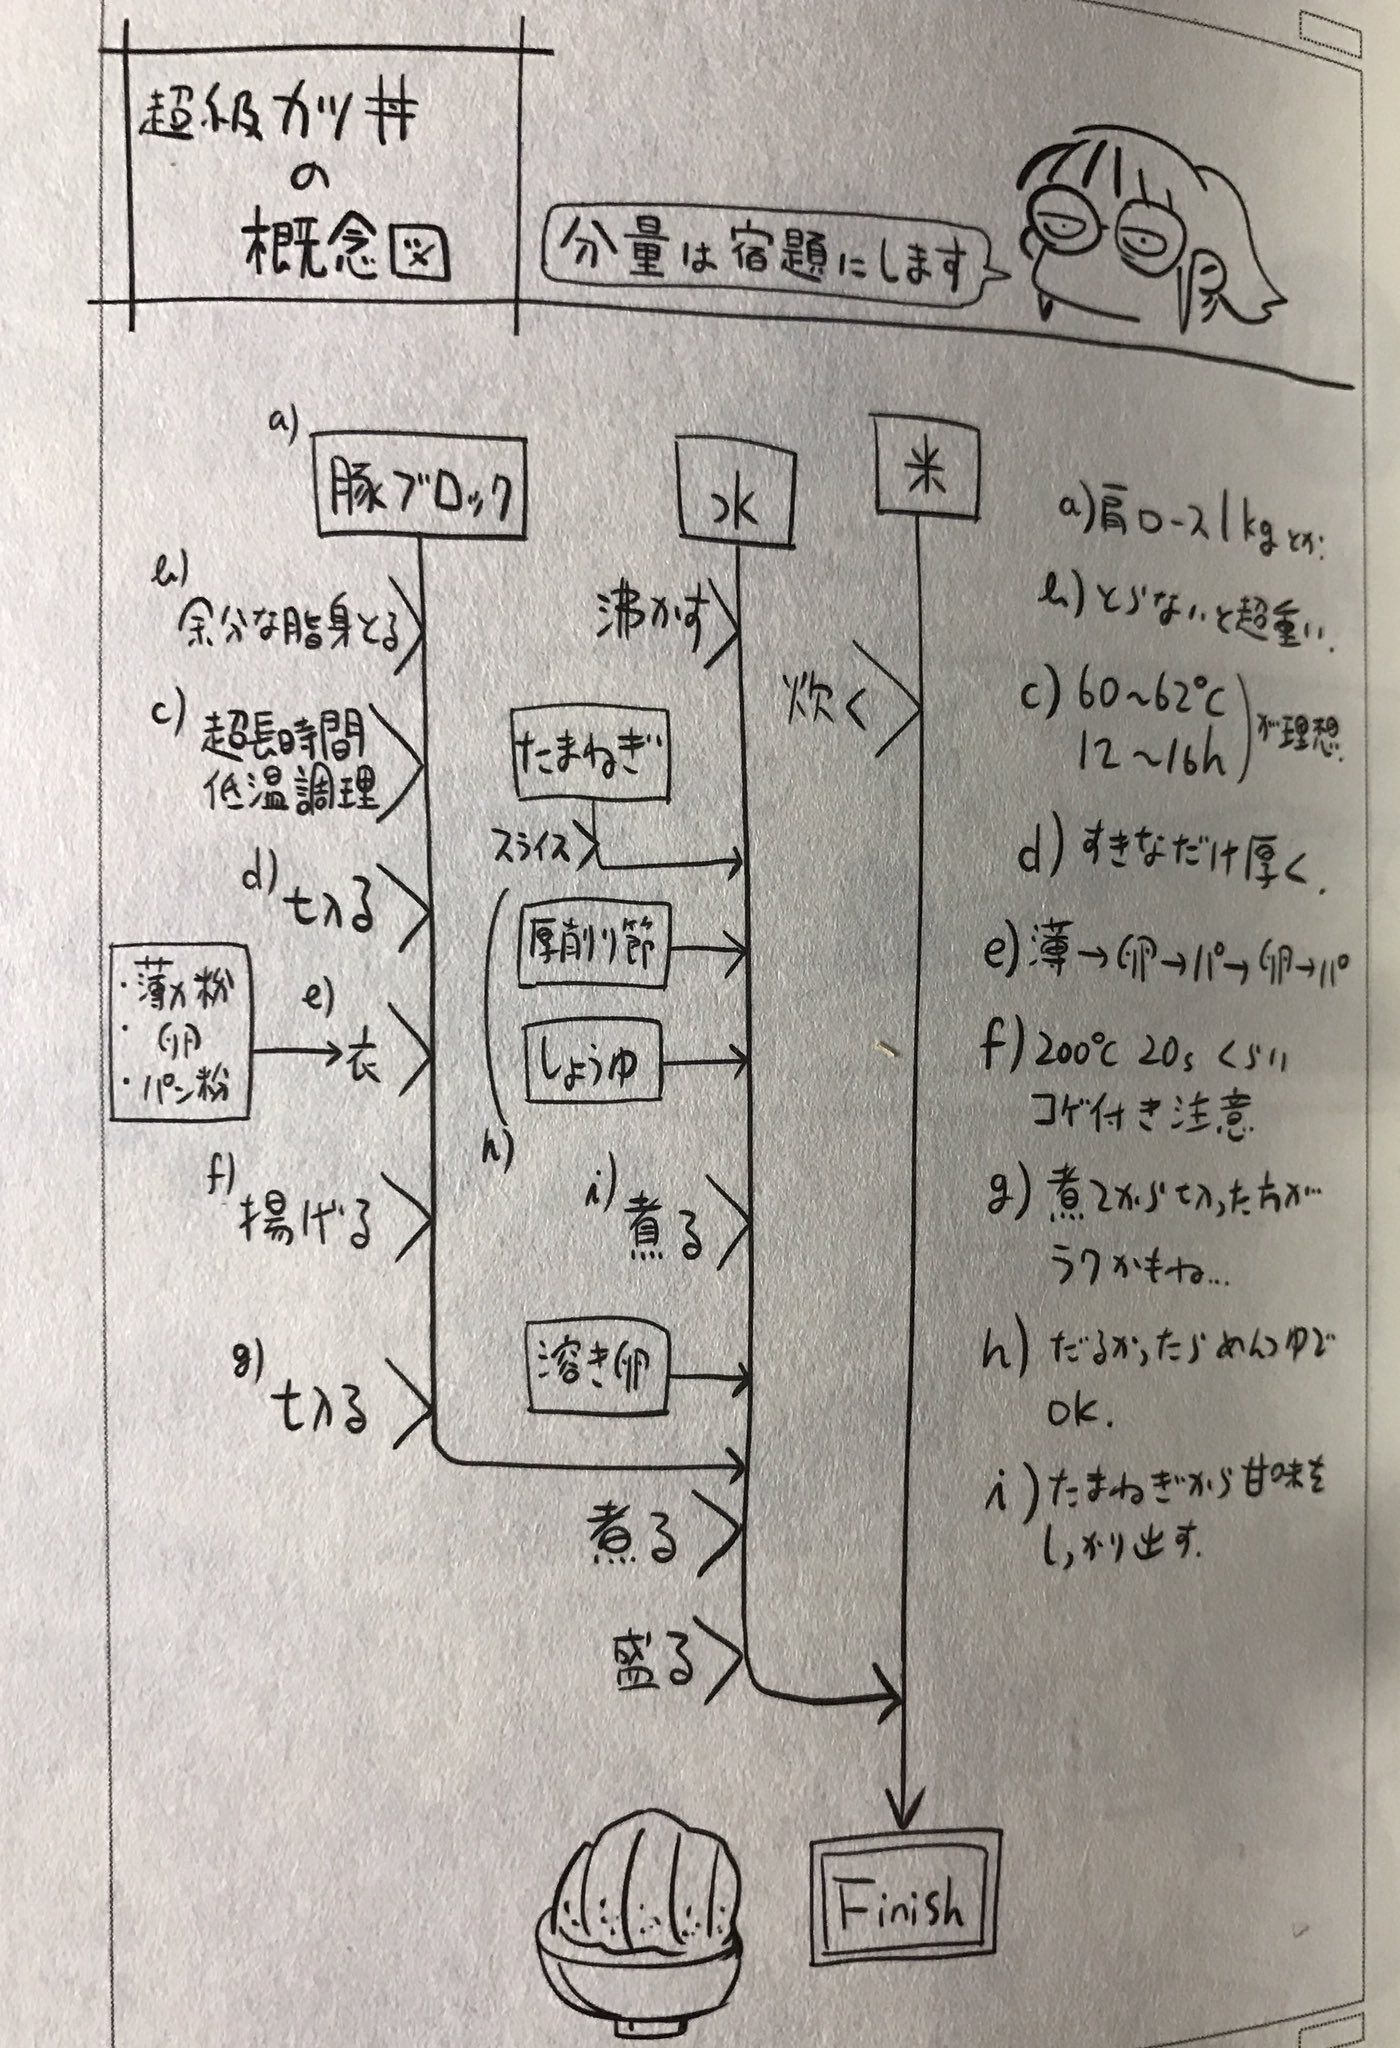 超級カツ丼
の
概念図
分量は宿題にします
a)
豚ブロック
水
米
b)
余分な脂身とる
沸かす
炊く
c)
超長時間
低温調理
たまねぎ
スライス
d)
切る
厚削り節
・薄力粉
・卵
・パン粉
e)
衣
しょうゆ
h)
f)
揚げる
i)
煮る
溶き卵
g)
切る
煮る
盛る
Finish
a)肩ロース1kgとか.
b)とらないと超重い.
c)60~62℃
12~16h
が理想
d)すきなだけ厚く.
e)薄→卵→パ→卵→パ
f)200℃ 20sくらい
コゲ付き注意
g)煮てから切った方が…
ラクかもね…
h)だるかったらめんつゆで
OK.
i)たまねぎから甘味を
しっかり出す.